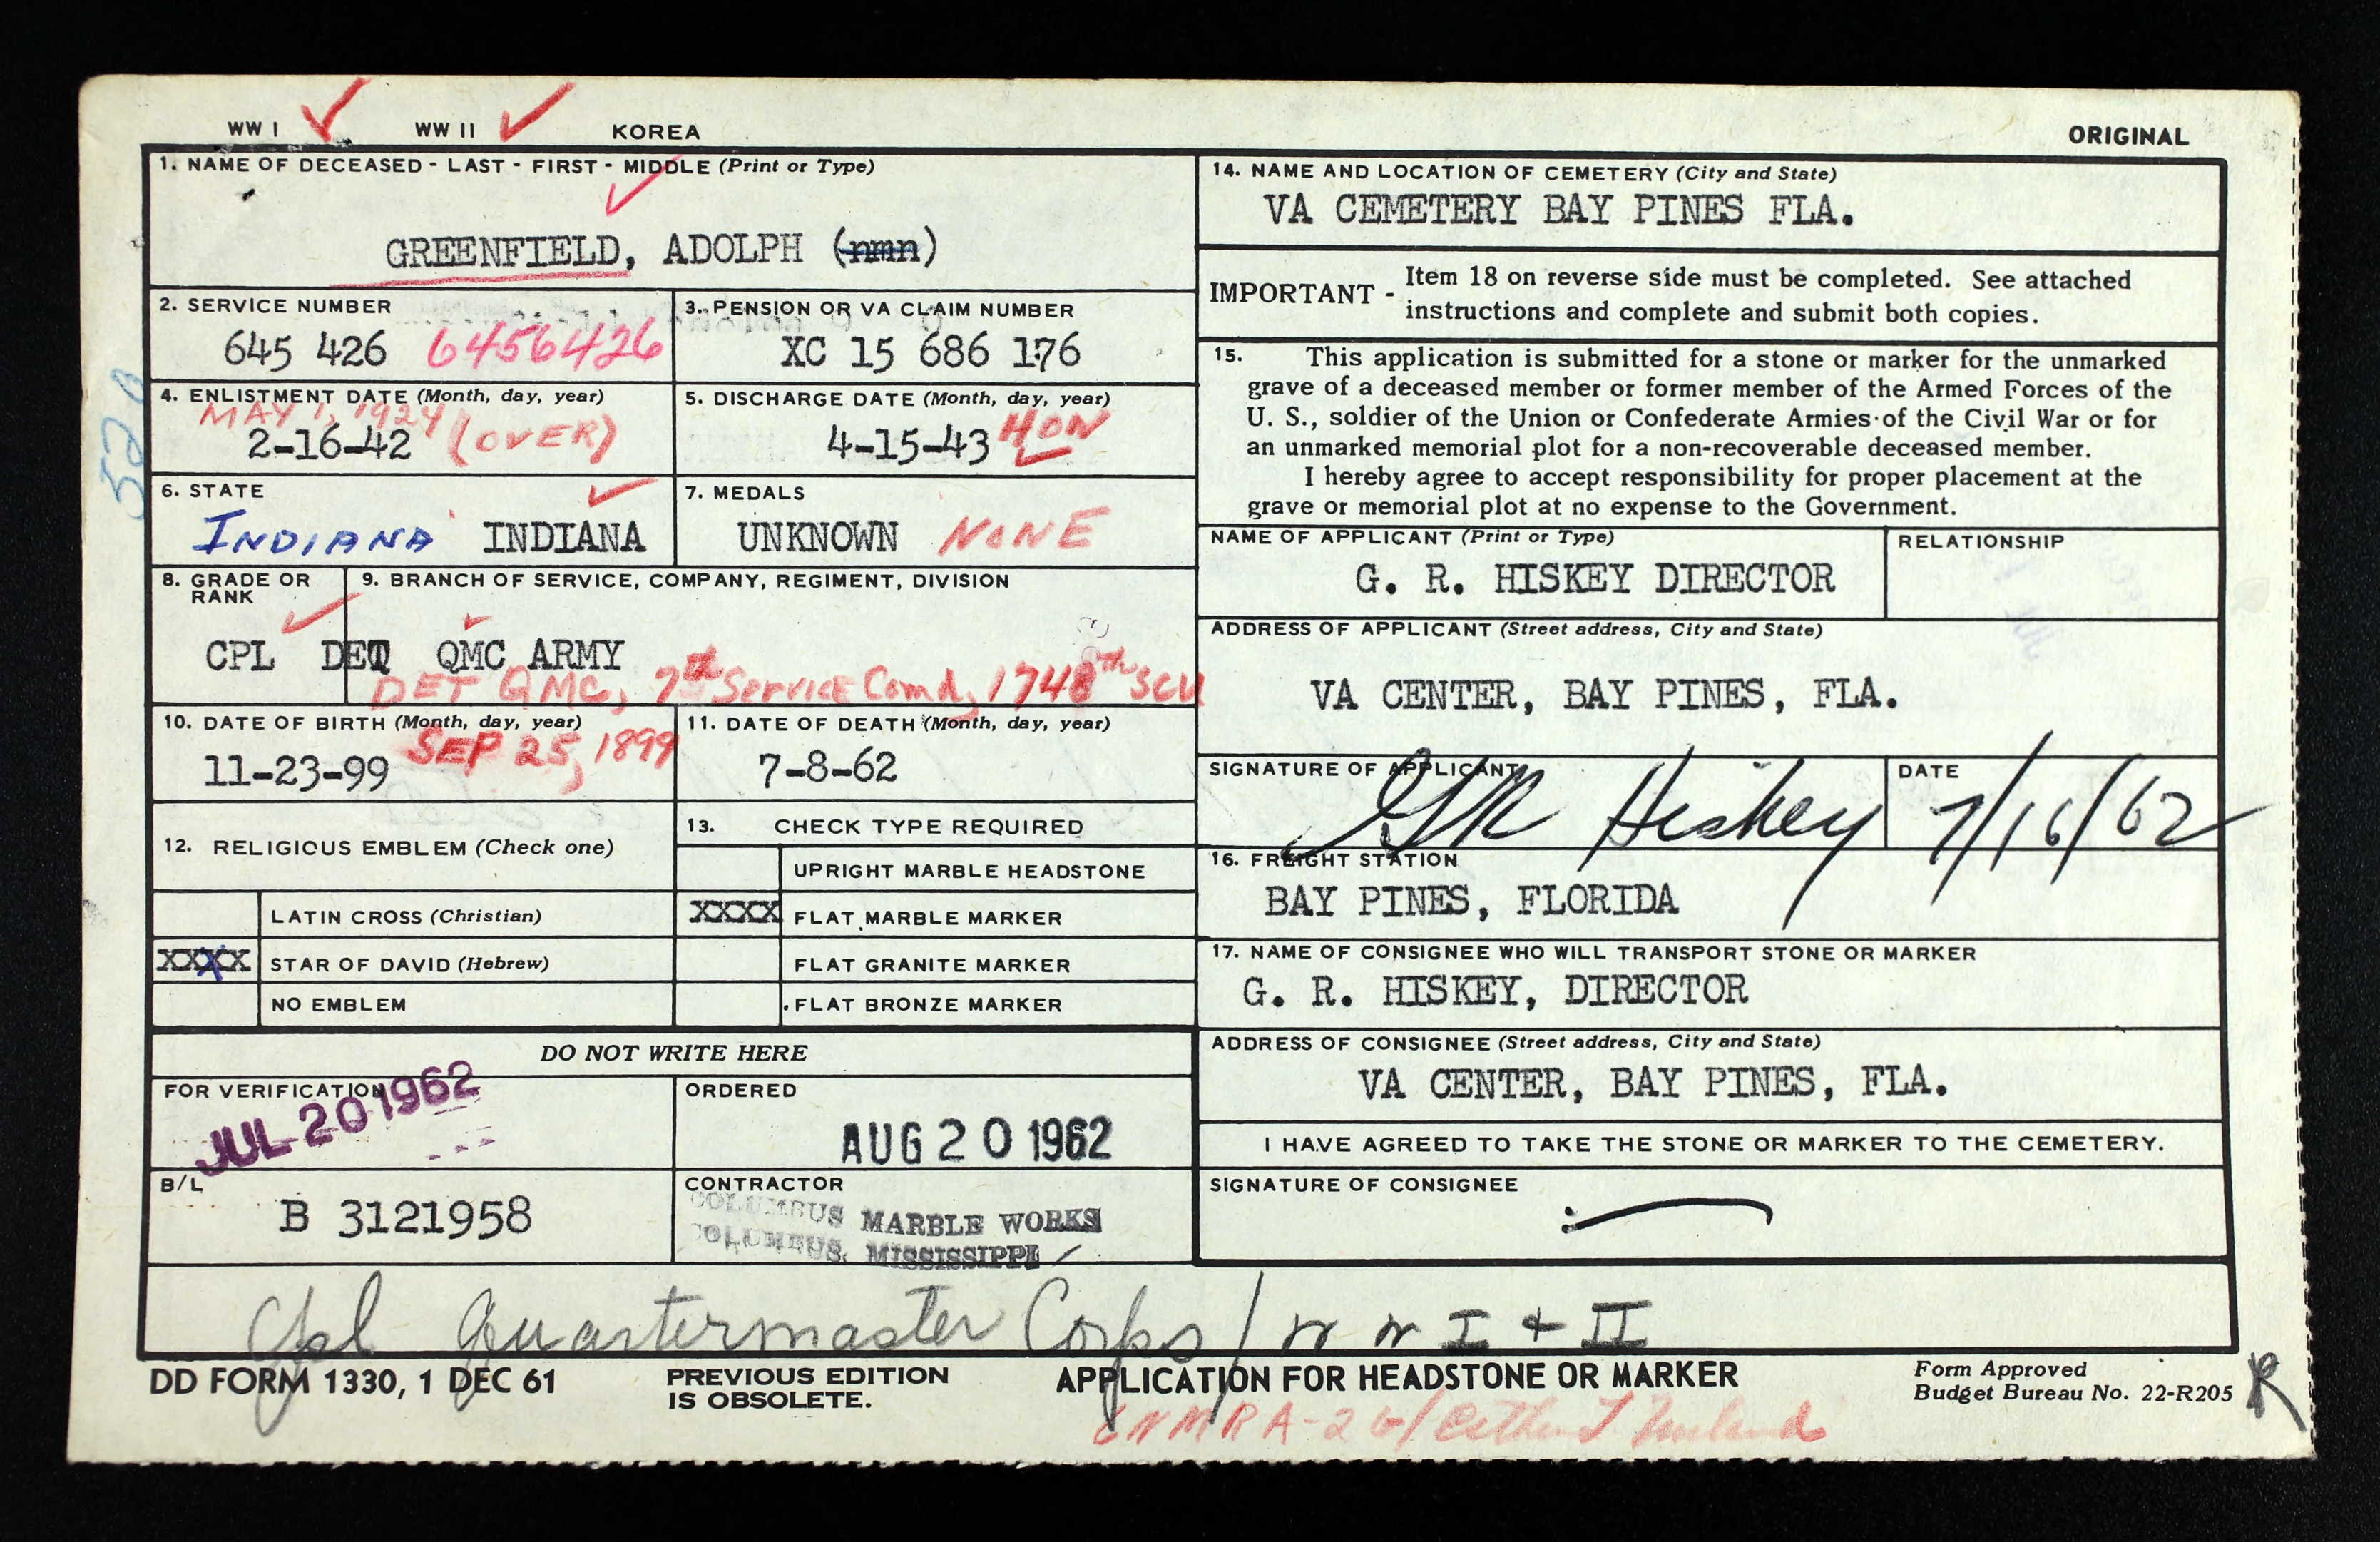 WW I ✓ WW II ✓ KOREA
ORIGINAL
1. NAME OF DECEASED - LAST - FIRST - MIDDLE (Print or Type)
GREENFIELD, ADOLPH (nmn)
2. SERVICE NUMBER
645 426 6456426
3. PENSION OR VA CLAIM NUMBER
XC 15 686 176
4. ENLISTMENT DATE (Month, day, year)
MAY 1, 1924
2-16-42 (OVER)
5. DISCHARGE DATE (Month, day, year)
4-15-43 HON
6. STATE
INDIANA INDIANA
7. MEDALS
UNKNOWN NONE
8. GRADE OR
RANK
9. BRANCH OF SERVICE, COMPANY, REGIMENT, DIVISION
CPL DET QMC ARMY
DET QMC, 7th Service Comd, 1748th SCU
10. DATE OF BIRTH (Month, day, year)
SEP 25, 1899
11-23-99
11. DATE OF DEATH (Month, day, year)
7-8-62
12. RELIGIOUS EMBLEM (Check one)
LATIN CROSS (Christian)
XXXX STAR OF DAVID (Hebrew)
NO EMBLEM
13. CHECK TYPE REQUIRED
UPRIGHT MARBLE HEADSTONE
XXXX FLAT MARBLE MARKER
FLAT GRANITE MARKER
FLAT BRONZE MARKER
DO NOT WRITE HERE
FOR VERIFICATION
JUL 20 1962
ORDERED
AUG 20 1962
B/L
B 3121958
CONTRACTOR
COLUMBUS MARBLE WORKS
COLUMBUS, MISSISSIPPI
14. NAME AND LOCATION OF CEMETERY (City and State)
VA CEMETERY BAY PINES FLA.
IMPORTANT - Item 18 on reverse side must be completed. See attached
instructions and complete and submit both copies.
15. This application is submitted for a stone or marker for the unmarked
grave of a deceased member or former member of the Armed Forces of the
U. S., soldier of the Union or Confederate Armies of the Civil War or for
an unmarked memorial plot for a non-recoverable deceased member.
I hereby agree to accept responsibility for proper placement at the
grave or memorial plot at no expense to the Government.
NAME OF APPLICANT (Print or Type)
G. R. HISKEY DIRECTOR
RELATIONSHIP
ADDRESS OF APPLICANT (Street address, City and State)
VA CENTER, BAY PINES, FLA.
SIGNATURE OF APPLICANT
GR Hiskey
DATE
7/16/62
16. FREIGHT STATION
BAY PINES, FLORIDA
17. NAME OF CONSIGNEE WHO WILL TRANSPORT STONE OR MARKER
G. R. HISKEY, DIRECTOR
ADDRESS OF CONSIGNEE (Street address, City and State)
VA CENTER, BAY PINES, FLA.
I HAVE AGREED TO TAKE THE STONE OR MARKER TO THE CEMETERY.
SIGNATURE OF CONSIGNEE
Cpl Quartermaster Corps / W W I + II
DD FORM 1330, 1 DEC 61
PREVIOUS EDITION
IS OBSOLETE.
APPLICATION FOR HEADSTONE OR MARKER
Form Approved
Budget Bureau No. 22-R205
R
520